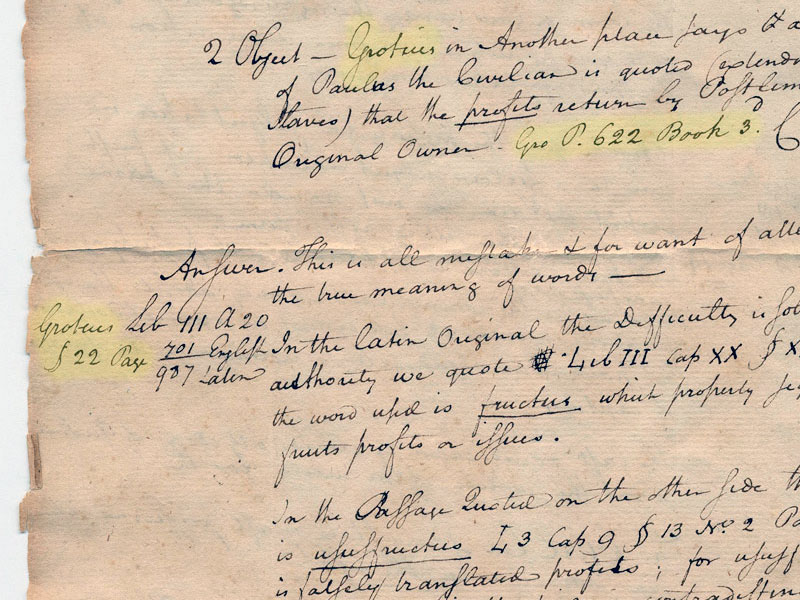 2 Object — Grotius in Another place says & a
of Paulus the Civilian is quoted (extend
Slaves) that the profits return by Postlim
Original Owner - Gro P. 622 Book 3.d
Answer. This is all mistake & for want of atte
the true meaning of words —
Grotius Lib III Ch 20
§ 22 Page 701 English
937 Latin
In the Latin Original the Difficulty is sol
authority we quote Lib III Cap XX § X
the word used is fructus which property sig
fruits profits or issues.
In the Passage Quoted on the other side th
is usuffructus L 3 Cap 9 § 13 No. 2 Pa
is falsely translated profits; for usuff